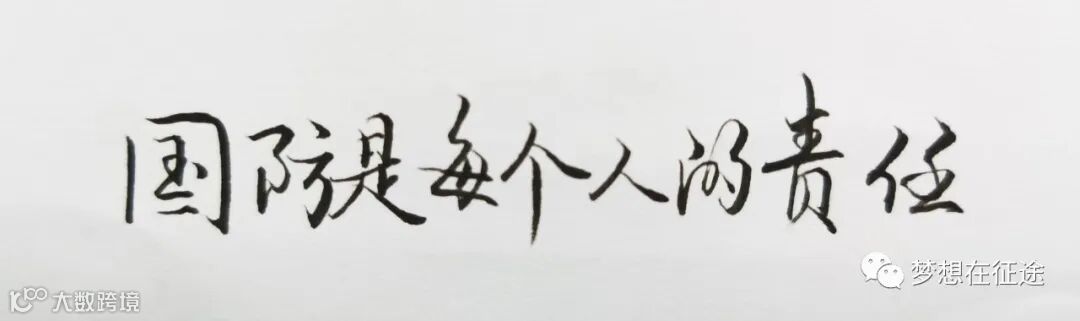 国防是每个人的责任
梦想在征途
大数跨境